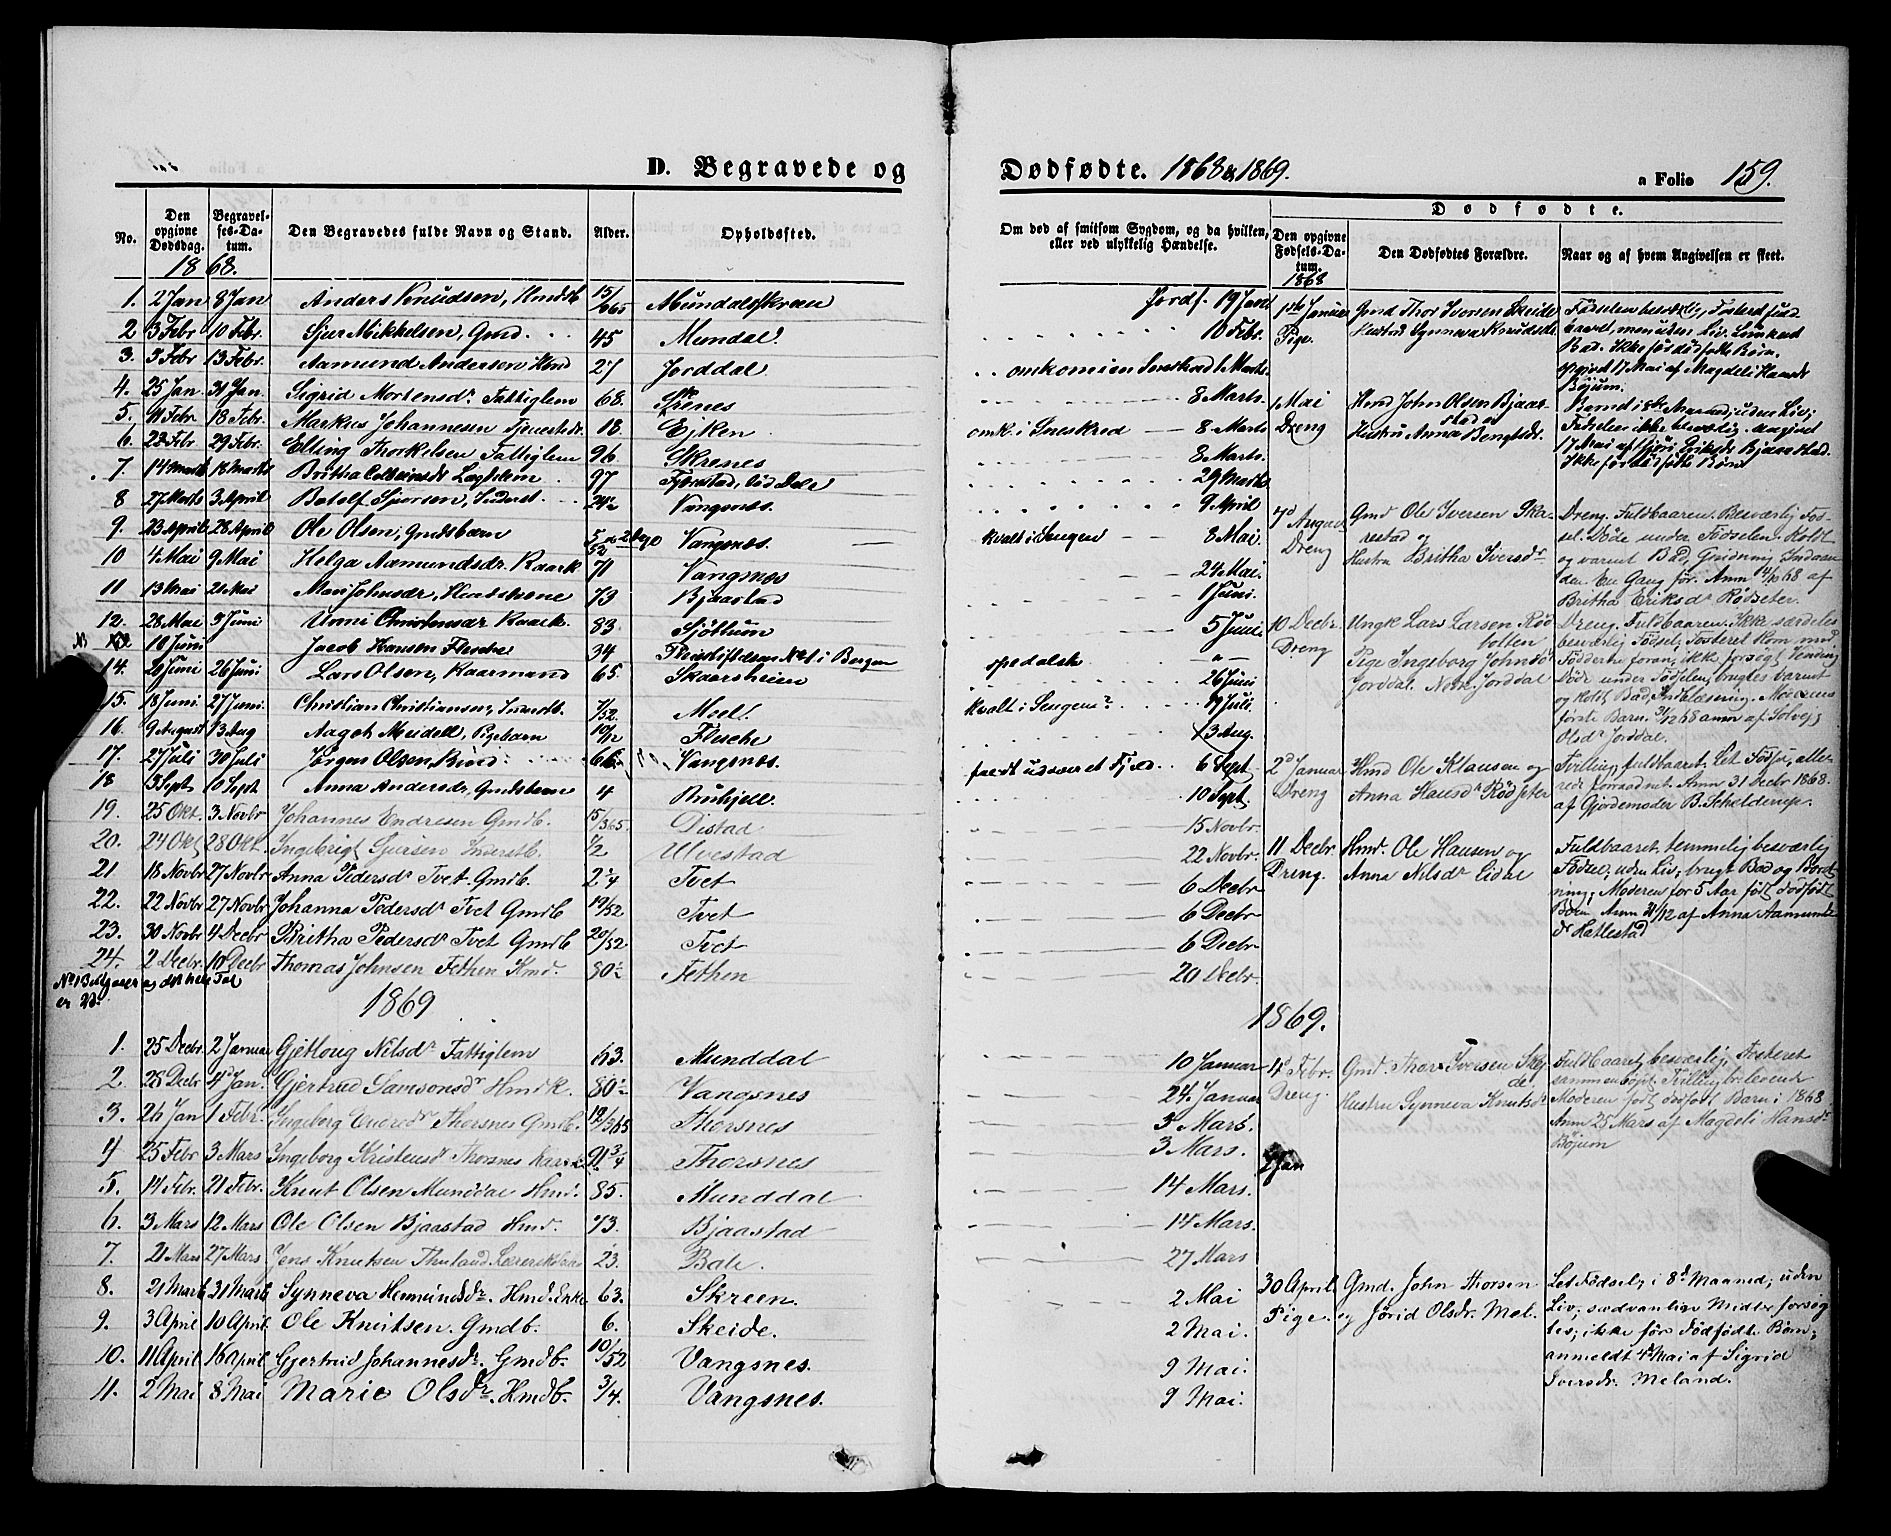 D. Begravede og
Dødfødte. 1868 & 1869.
a Folio 159.
No.
Den opgivne Dødsdag.
Begravelses-Datum.
Den Begravedes fulde Navn og Stand.
Alder.
Opholdssted.
Om død af smitsom Sygdom, og da hvilken, eller ved ulykkelig Hændelse.
Dødfødte.
Den opgivne Fødsels-Datum.
Den Dødfødtes Forældre.
Naar og af hvem Angivelsen er skeet.
1868.
1868
1. 2 Jan 8 Jan Anders Knudsen, 15/365 Jordf. 19 Jan
2 3 Febr 10 Febr. Sjur Mikkelsen, Gmd. 45 Mundal. 10 Febr.
3. 3 Febr 13 Febr. Aamund Andersen 27 Jorddal omkommen i Sneskred 1 Marts
4. 25 Jan 31 Jan Sigrid Mortensdr Fattiglem 68. Skrenes 8 Marts
5. 11 Febr 18 Febr. Markus Johannesen 18 Ejken omk. i Sneskred 8 Marts
6. 22 Febr 29 Febr. Elling Thorkelsen Fattiglem 96 Skrenes 8 Marts.
7 14 Marts 18 Marts Britha 97 29 Marts
8 27 Marts 3 April Botolf Sjursen, Inderst. Vangsnes. 9 April
9. 23 April 28 April Ole Olsen, Gmdsbarn Vangsnes. kvalt i Sengen 8 Mai.
10 4 Mai 9 Mai Helga Aamundsdr. Kaark 71 Vangsnæs 24 Mai.
11 13 Mai 21 Mai Mari Johnsdr, 73 Bjaastad 1 Juni.
12. 28 Mai 3 Juni Christensdr Kaark. 83. Sjøttun 5 Juni
18 Juni Jacob Hansen Flesche 34 Pleiestiftelsen No 1 i Bergen spedalsk
14. 20 Juni 26 Juni Lars Olsen, Kaarmand 65. Skaarsheien 26 Juni
15. 18 Juni 27 Juni. Christian Christiansen, Inderstb. 7/52. Moel. kvalt i Sengen? 19 Juli.
16 9 August 13 Aug Aagot Meidell, 10/12 Flesche 13 Aug.
17. 27 Juli 30 Juli Jørgen Olsen Rind 66 Vangsnes. faldt udover et Fjeld 6 Sept
18 3 Sept 10 Sept Anna Andersdr, Gmdsbarn 4 10 Sept
19. 25 Okt. 3 Novbr Johannes Endresen Gmdb. 15/365. Distad 15 Novbr.
20. 24 Okt 28 Okt. Ingebrigt Sjursen Inderstb. 1/2 Ulvestad 22 Novbr.
21 18 Novbr 27 Novbr Anna Pedersdr Tvet. Gmdb. Tvet 6 Decbr
22. 22 Novbr 27 Novbr Johanna Pedersdr Tvet Gmdb 19/52 Tvet 6 Decbr
23. 30 Novbr 4 Decbr Britha Pedersdr Tvet Gmdb 20/52. Tvet 6 Decbr
24. 2 Decbr. 10 Decbr Thomas Johnsen Fethen Hmd. 80½ Fethen 20 Decbr.
1869
1869.
1. 25 Decbr. 2 Januar Gjetloug Nilsdr Fattiglem 63. Munddal 10 Januar
2 28 Decbr 4 Jan. Gjertrud Samsonsdr Hmdk. 80½ Vangsnes 24. Januar
3. 26 Jan 1 Febr. Ingeborg Endresdr Thorsnes Gmdb. 12/365 Thorsnes 3 Mars.
4 25 Febr 3 Mars Ingeborg Kristensdr Thorsnes 91¾ Thorsnes 3 Mars.
5. 14 Febr. 21 Febr. Knut Olsen Munddal Hmd. 85. Munddal 14 Mars.
6. 3 Mars 12 Mars Ole Olsen Bjaastad Hmd. 73. Bjaastad 14 Mars.
7. 21 Mars 27 Mars Jens Knutsen 23. Bale. 27 Mars
8. 21 Mars 31 Mars Synneva Hermundsdr. Hmd. Enke 63. Skreen. 2 Mai
9. 3 April 10 April. Ole Knutsen. Gmdb. 6. Skeide. 2 Mai.
10. 11 April 16 April. Gjertrud Johannesdr. Gmdb. 10/52 Vangsnes. 9 Mai.
11. 2 Mai 8 Mai Marie Olsdr. Hmdb. 3/4. Vangsnes. 9 Mai.
Januar Pige.
Gmd Thor Iversen Skeide
Hustru Synneva Knudsdr
Fødselen besværlig, Fosteret fuldbaaret, men uden Liv.
Bad. Ikke før dødfødte Børn.
17 Mai af Magdeli Hansdr
Bøjum.
1 Mai Dreng
Hmd John Olsen Bjaastad og
Hustru Anna Bengtsdr.
uden Liv;
Fødselen ikke besværlig. Angivet
17 Mai af Eriksdr Bjaastad.
Ikke før dødfødte Børn
7d August Dreng
Gmd Ole Iversen Skarestad og
Hustru Britha Iversdr
Dreng. Fuldbaaren. Besværlig Fødsel. Døde under Fødselen. Koldt
og varmt Bad, Gnidning
En Gang før. Anm 4/10 68 af
Britha Eriksdr Rødseter.
10 Decbr. Dreng
Ungk Lars Larsen Rødbotten
Pige Ingeborg Johnsdr
Jorddal
Dreng. Fuldbaaren. Ikke særdeles
besværlig Fødsel; Fosteret kom med
Fødderne foran, ikke forsøgt Vending
Døde under Fødselen, brugtes varmt
og koldt Bad, Indblæsning. Moderens
første Barn. 31/12 68 anm af Solvej
Olsdr Jorddal.
2d Januar Dreng
Hmd Ole Klausen og
Anna Hansdr Rødseter
Tvilling, fuldbaaret. Let Fødsel, allerede forraadnet. Anm 31 Decbr 1868.
af Gjordemoder B. Schelderup.
11 Decbr. Dreng.
Hmd. Ole Hansen og
Anna Nilsdr Eidal
Fuldbaaret, temmelig besværlig
Fødsel, uden Liv, brugt Bad og Børstning, Moderen før 5 Aar født dødfødt
Børn Anm 31/12 af Anna Aamundsdr Hallestad
4d Febr. Dreng.
Gmd. Thor Iversen Skejde
Hustru Synneva Knutsdr
Fuldbaaret, besværlig, Fosteret
sammenbøjet Tvilling
Moderen født dødfødt Barn i 1868
Anm 25 Mars af Magdeli Hansdr
Bøjum
30 April. Pige.
Gmd. John Thorsen
og Jørid Olsdr. Mel.
Let Fødsel; i 8d Maaned; uden
Liv; sædvanlige Midler forsøgtes; ikke før Dødfødte Børn;
anmeldt 4d Mai af Sigrid
Iversdr. Meland.